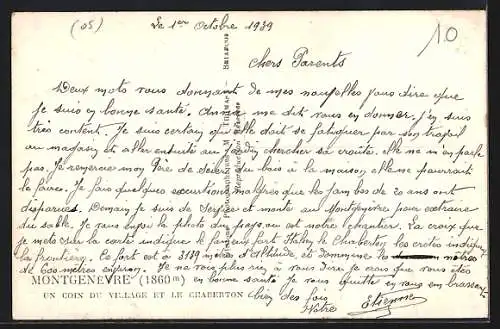 (05) Le 1er Octobre 1939
10
Chers Parents
Deux mots vous donnant de mes nouvelles pour dire que
je suis en bonne santé. me dit vous en donner. j'en suis
très content. Je suis certain qu'elle doit se fatiguer par son travail
au magasin et aller ensuite au jardin chercher sa croûte. elle ne m'en parle
pas. Je remercie mon Père de du bois à la maison elle ne pourrait
le faire. Je fais quelques excursions malgrés que les jambes de 20 ans ont
disparues. Demain je suis de Service et monte au Montgenèvre pour extraire
du sable. Je vous envoi la photo du pays, ou est notre chantier. La croix que
je mets sur la carte indique le fameux fort Italien le Chaberton les croix indique
la frontière. Ce fort est à 3119 mètres d'altitude, et domine les mètres
de 600 mètres environ. Je ne vois plus rien à vous dire je crois que vous êtes
MONTGENÈVRE (1860 m) en bonne santé Je vous quitte en vous embrassant
UN COIN DU VILLAGE ET LE CHABERTON bien des fois
Votre Etienne